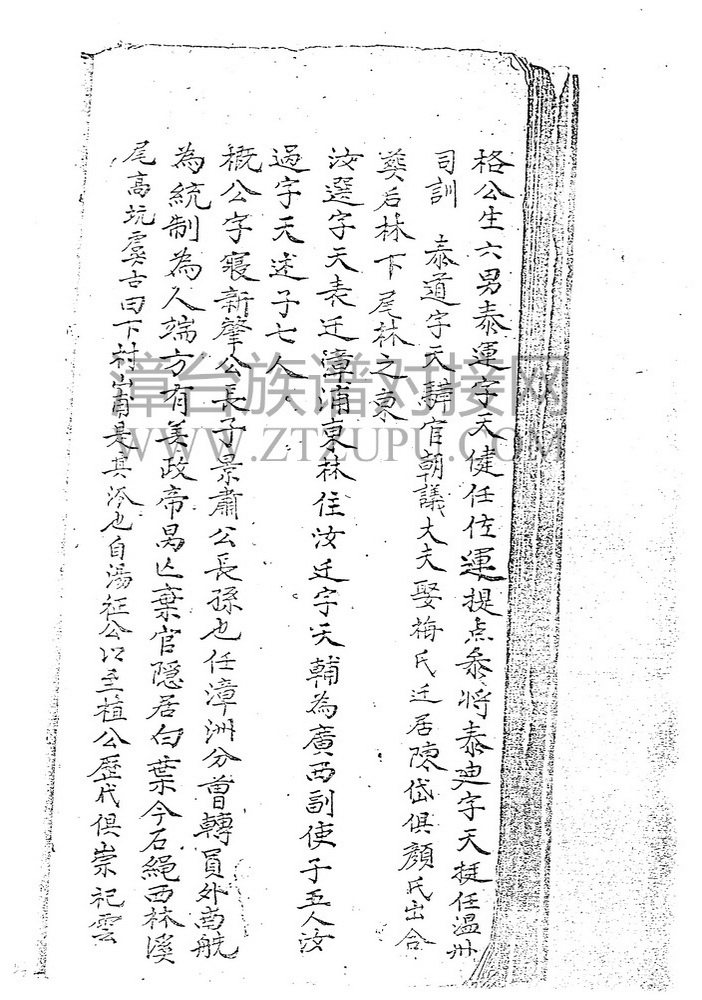 格公生六男泰運字天健任佐運提点叅將泰迪字天挺任溫州
司訓　泰道字天騂官朝議大夫娶梅氏迁居陳岱俱顏氏出合
葬后林下尾林之東
汝選字天表迁漳浦東林住汝迁字天輔為廣西副使子五人汝
過字天述子七人
概公字寢新肇公長子景肅公長孫也任漳洲分曾轉員外南航
為統制為人端方有美政帝昺亡棄官隱居白葉今石繩西林溪
尾高坑虞古田下村山甫是其派也自湯征公以至植公歷代俱崇祀雲
漳台族谱对接网
WWW.ZTZUPU.COM